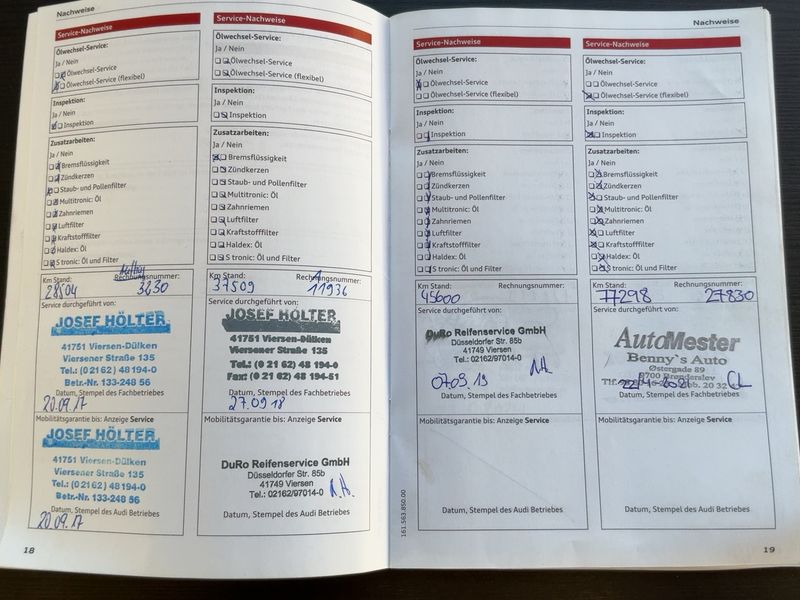 Nachweise
Service-Nachweise
Ölwechsel-Service:
Ja / Nein
Ölwechsel-Service
Ölwechsel-Service (flexibel)
Inspektion:
Ja / Nein
Inspektion
Zusatzarbeiten:
Ja / Nein
Bremsflüssigkeit
Zündkerzen
Staub- und Pollenfilter
Multitronic: Öl
Zahnriemen
Luftfilter
Kraftstofffilter
Haldex: Öl
S tronic: Öl und Filter
Km Stand: Rechnungsnummer:
28504 3230
Service durchgeführt von:
JOSEF HÖLTER
41751 Viersen-Dülken
Viersener Straße 135
Tel.: (0 21 62) 48 194-0
Betr.-Nr. 133-248 56
Datum, Stempel des Fachbetriebes
20.09.17
Mobilitätsgarantie bis: Anzeige Service
JOSEF HÖLTER
41751 Viersen-Dülken
Viersener Straße 135
Tel.: (0 21 62) 48 194-0
Betr.-Nr. 133-248 56
Datum, Stempel des Audi Betriebes
20.09.17
18
Service-Nachweise
Ölwechsel-Service:
Ja / Nein
Ölwechsel-Service
Ölwechsel-Service (flexibel)
Inspektion:
Ja / Nein
Inspektion
Zusatzarbeiten:
Ja / Nein
Bremsflüssigkeit
Zündkerzen
Staub- und Pollenfilter
Multitronic: Öl
Zahnriemen
Luftfilter
Kraftstofffilter
Haldex: Öl
S tronic: Öl und Filter
Km Stand: Rechnungsnummer:
37509 11936
Service durchgeführt von:
JOSEF HÖLTER
41751 Viersen-Dülken
Viersener Straße 135
Tel.: (0 21 62) 48 194-0
Fax: (0 21 62) 48 194-51
Datum, Stempel des Fachbetriebes
27.09.18
Mobilitätsgarantie bis: Anzeige Service
DuRo Reifenservice GmbH
Düsseldorfer Str. 85b
41749 Viersen
Tel.: 02162/97014-0
Datum, Stempel des Audi Betriebes
161.563.850.00
Nachweise
Service-Nachweise
Ölwechsel-Service:
Ja / Nein
Ölwechsel-Service
Ölwechsel-Service (flexibel)
Inspektion:
Ja / Nein
Inspektion
Zusatzarbeiten:
Ja / Nein
Bremsflüssigkeit
Zündkerzen
Staub- und Pollenfilter
Multitronic: Öl
Zahnriemen
Luftfilter
Kraftstofffilter
Haldex: Öl
S tronic: Öl und Filter
Km Stand: Rechnungsnummer:
45600
Service durchgeführt von:
DuRo Reifenservice GmbH
Düsseldorfer Str. 85b
41749 Viersen
Tel.: 02162/97014-0
07.09.19
Datum, Stempel des Fachbetriebes
Mobilitätsgarantie bis: Anzeige Service
Datum, Stempel des Audi Betriebes
Service-Nachweise
Ölwechsel-Service:
Ja / Nein
Ölwechsel-Service
Ölwechsel-Service (flexibel)
Inspektion:
Ja / Nein
Inspektion
Zusatzarbeiten:
Ja / Nein
Bremsflüssigkeit
Zündkerzen
Staub- und Pollenfilter
Multitronic: Öl
Zahnriemen
Luftfilter
Kraftstofffilter
Haldex: Öl
S tronic: Öl und Filter
Km Stand: Rechnungsnummer:
77298 27830
Service durchgeführt von:
AutoMester
Benny's Auto
Østergade 89
Datum, Stempel des Fachbetriebes
Mobilitätsgarantie bis: Anzeige Service
Datum, Stempel des Audi Betriebes
19